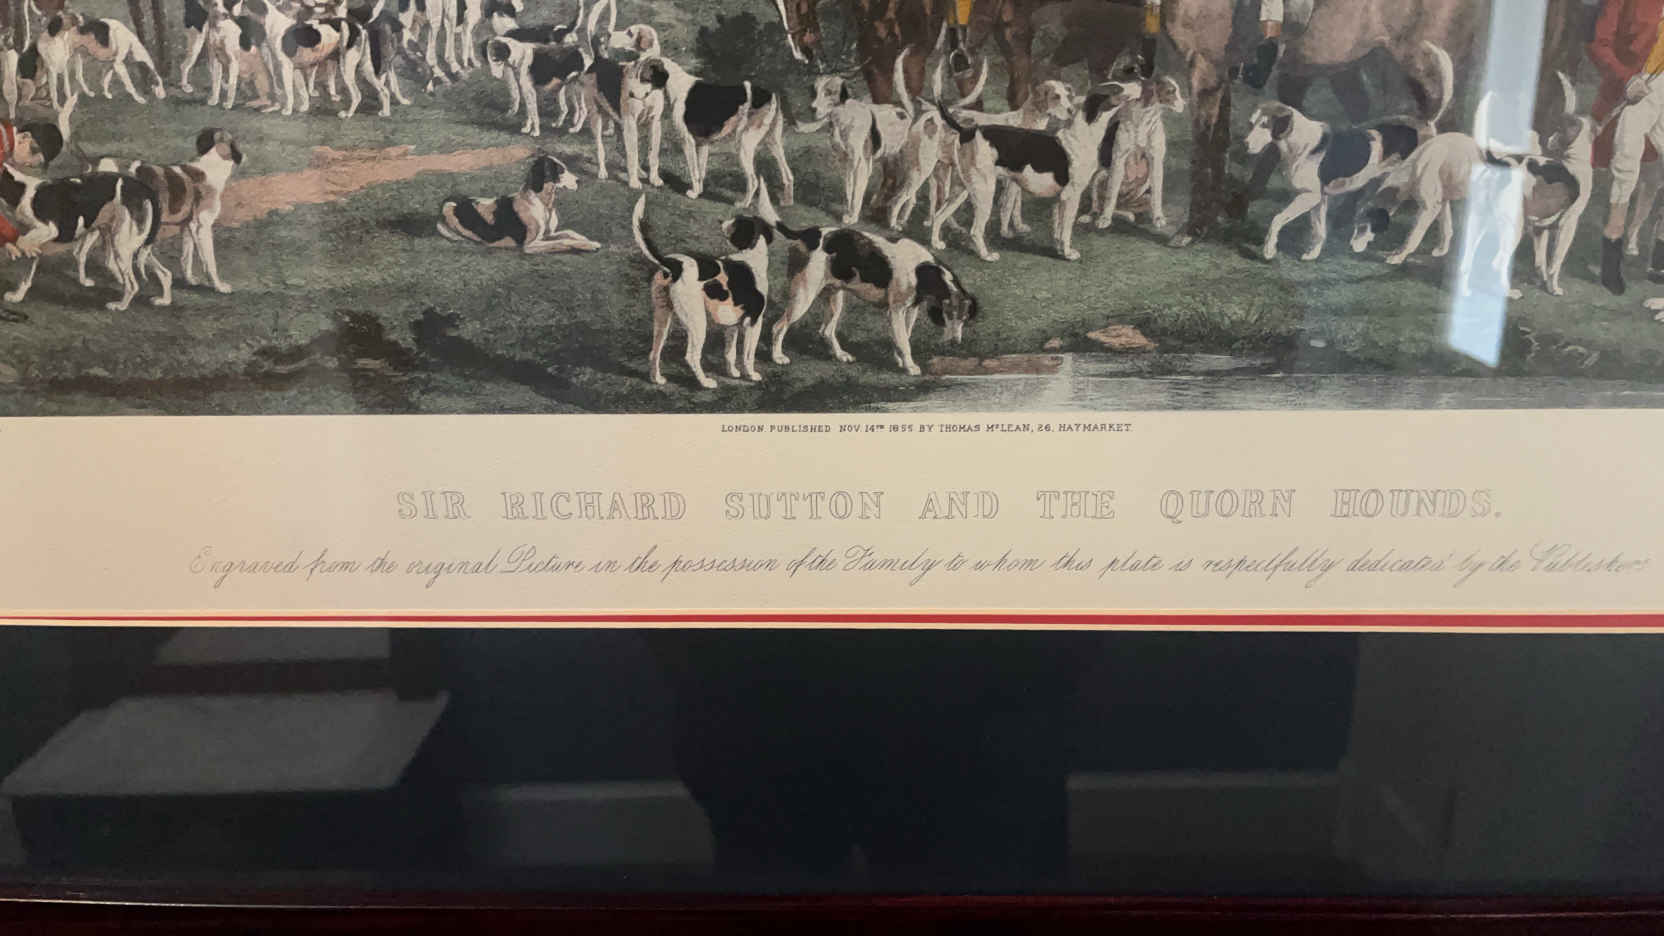 LONDON. PUBLISHED NOV. 14TH 1855 BY THOMAS McLEAN, 26, HAYMARKET.
SIR RICHARD SUTTON AND THE QUORN HOUNDS.
Engraved from the original Picture in the possession of the Family to whom this plate is respectfully dedicated by the Publishers